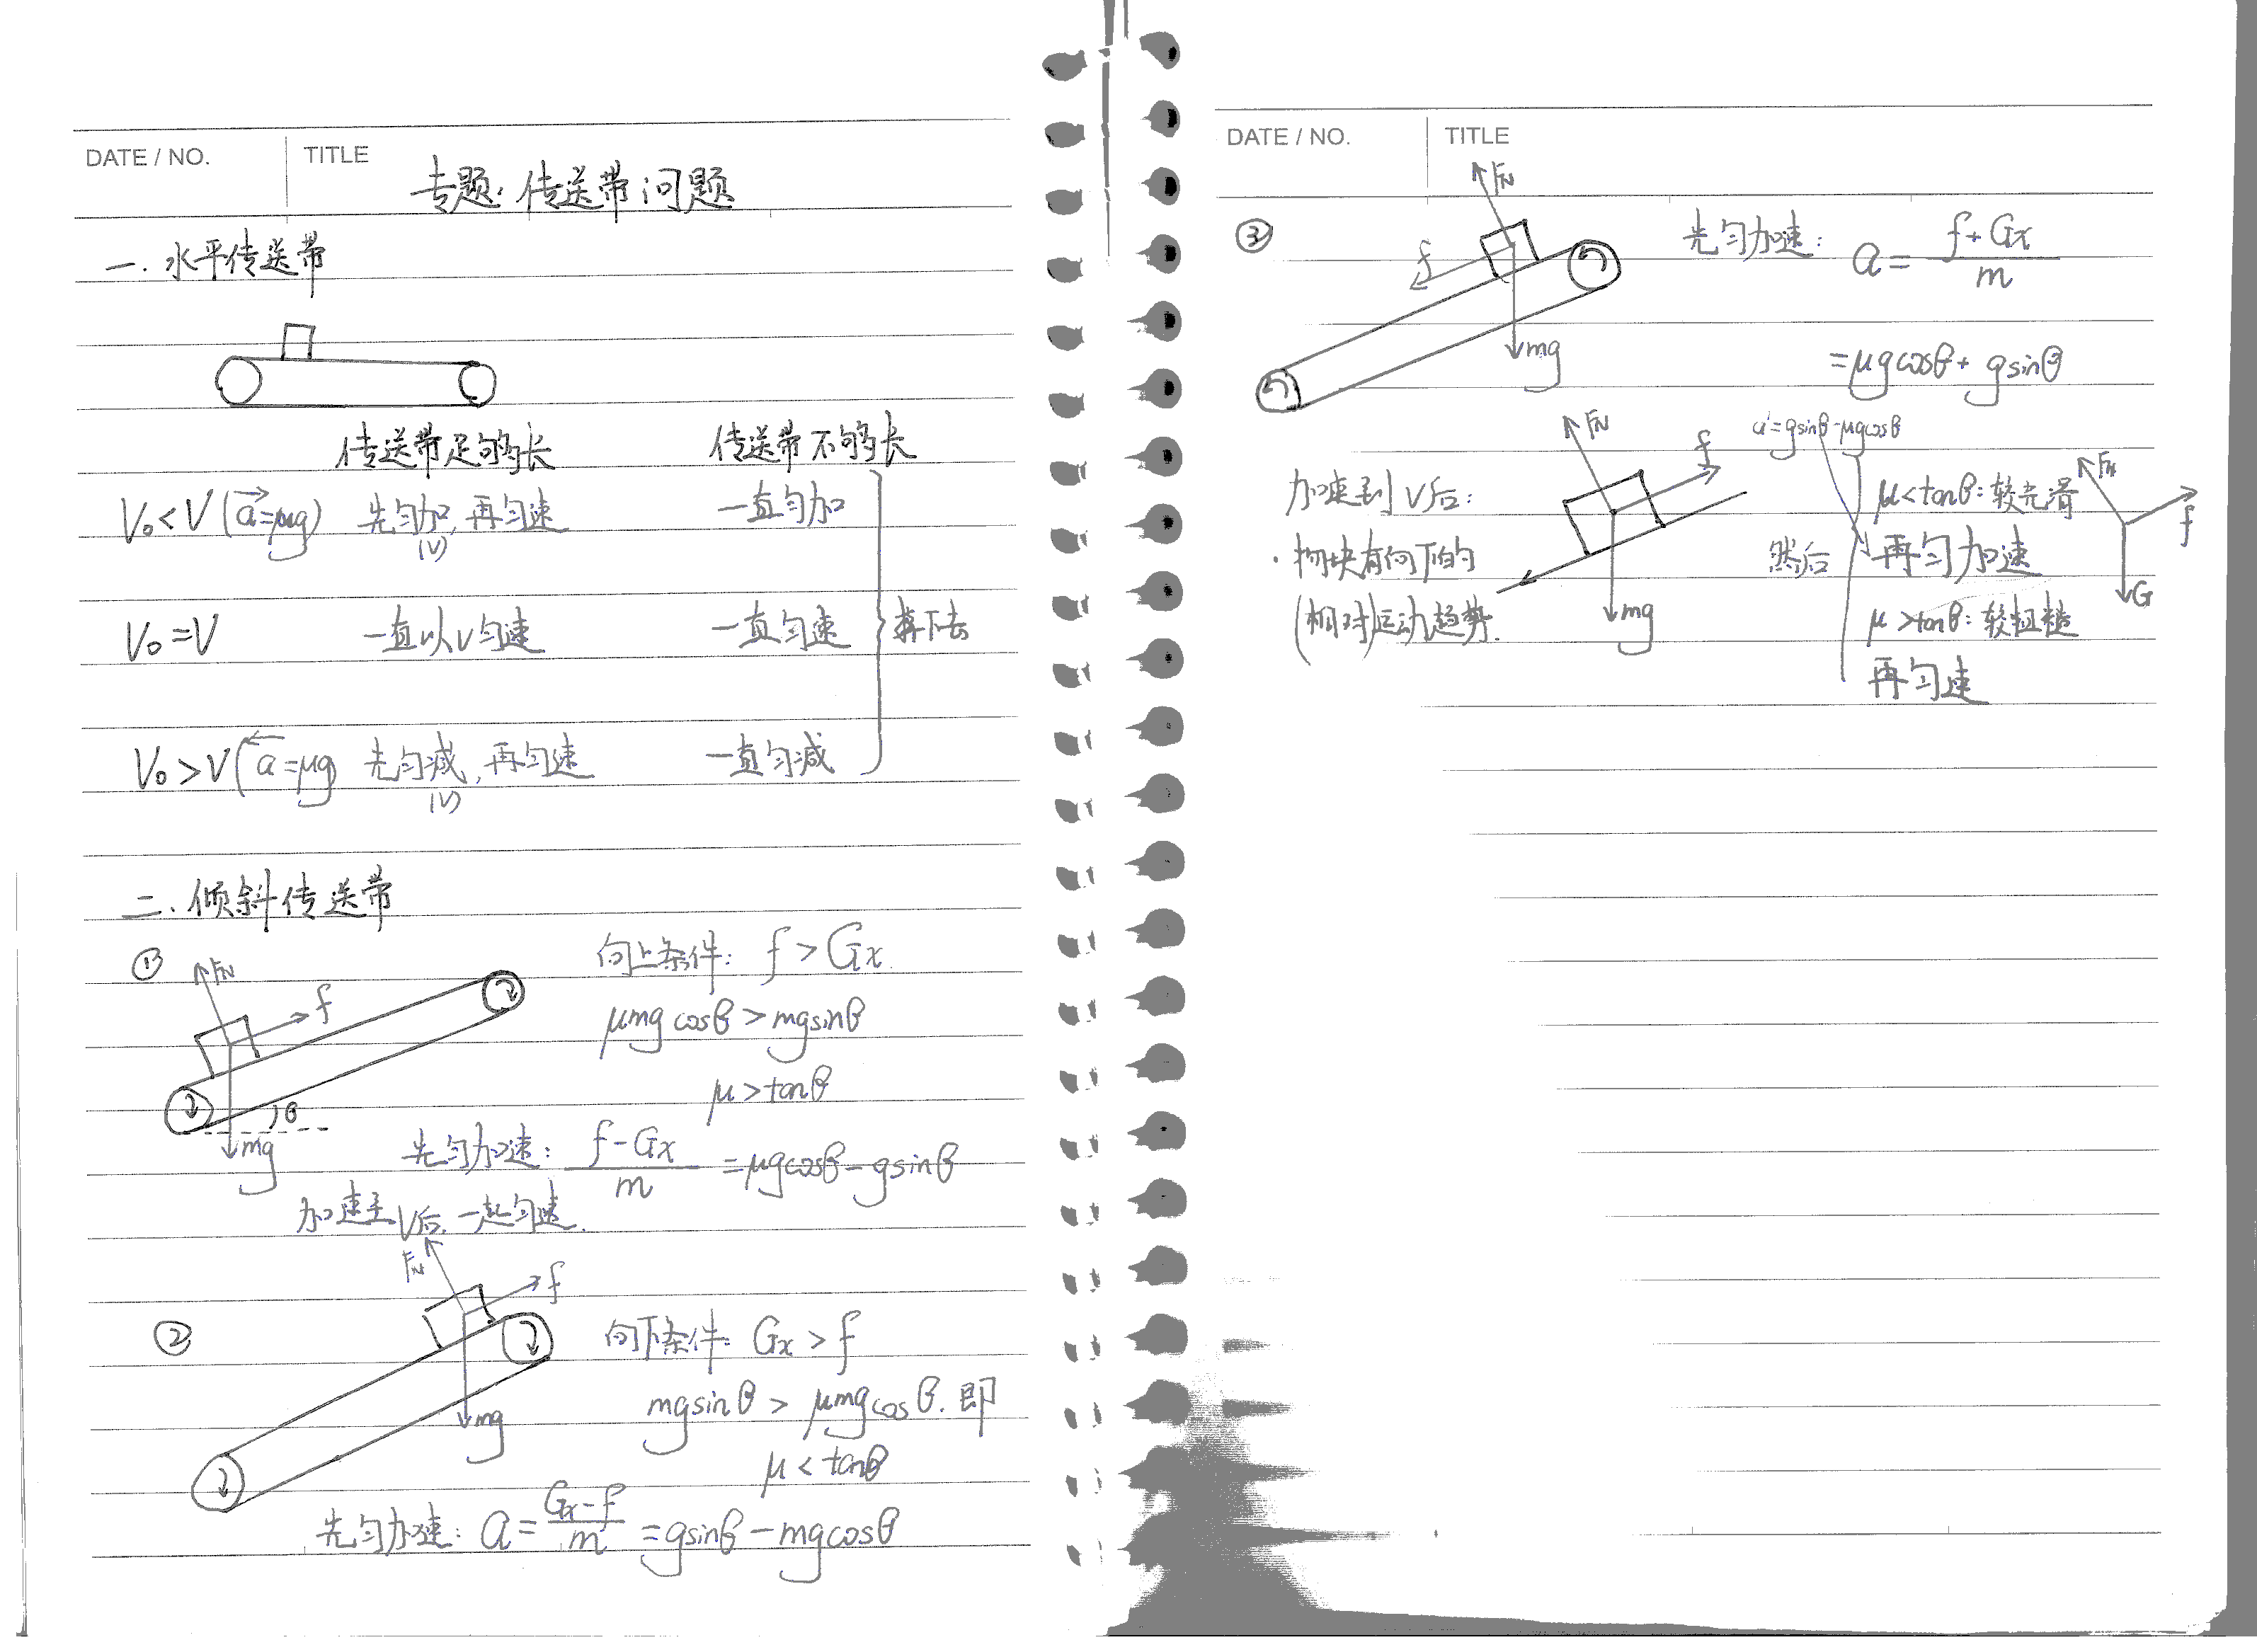 DATE / NO.
TITLE
专题:传送带问题
一.水平传送带
传送带足够长 传送带不够长
V₀<V (a=μg) 先匀加,再匀速 一直匀加
(V)
V₀=V 一直以V匀速 一直匀速 掉下去
V₀>V (a=μg 先匀减,再匀速 一直匀减
(V)
二.倾斜传送带
① FN f mg θ
向上条件: f>Gx
μmgcosθ>mgsinθ
μ>tanθ
先匀加速: (f-Gx)/m =μgcosθ-gsinθ
加速至V后,一起匀速.
② FN f mg
向下条件: Gx>f
mgsinθ>μmgcosθ.即
μ<tanθ
先匀加速: a=(Gx-f)/m =gsinθ-mgcosθ
DATE / NO.
TITLE
③ FN f mg
先匀加速: a=(f+Gx)/m
=μgcosθ+gsinθ
加速到V后:
·物块有向下的
(相对)运动趋势.
FN f mg
a=gsinθ-μgcosθ
μ<tanθ:较光滑
然后 再匀加速
μ>tanθ:较粗糙
再匀速
FN f G